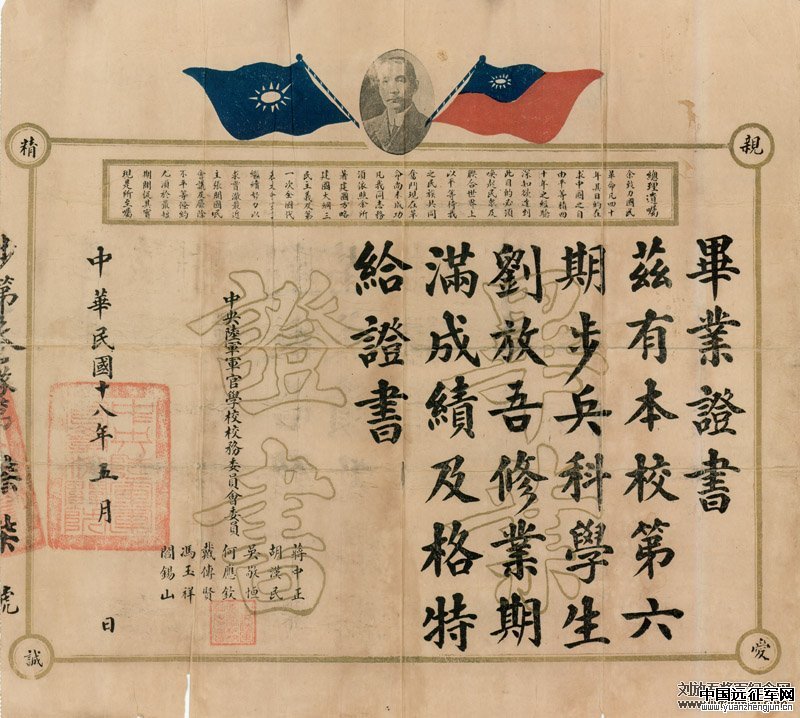 親
精
愛
誠
總理遺囑
余致力國民
革命凡四十
年其目的在
求中國之自
由平等積四
十年之經驗
深知欲達到
此目的必須
喚起民眾及
聯合世界上
以平等待我
之民族共同
奮鬥現在革
命尚未成功
凡我同志務
須依照余所
著建國方略
建國大綱三
民主義及第
一次全國代
表大會宣言
繼續努力以
求貫澈最近
主張開國民
會議及廢除
不平等條約
尤須於最短
期間促其實
現是所至囑
畢業證書
茲有本校第六
期步兵科學生
劉放吾修業期
滿成績及格特
給證書
畢業
證書
中央陸軍軍官學校校務委員會委員
蔣中正
胡漢民
吳敬恒
何應欽
戴傳賢
馮玉祥
閻錫山
中華民國十八年五月 日
柒號
中国远征军网
www.yuanzhengjun.cn